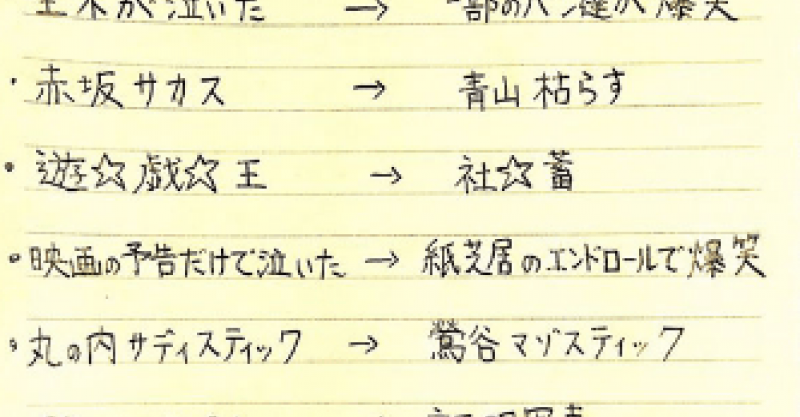 が泣いた → 一部のパン達が爆笑
・赤坂サカス → 青山枯らす
・遊☆戯☆王 → 社☆蓄
・映画の予告だけで泣いた → 紙芝居のエンドロールで爆笑
・丸の内サディスティック → 鶯谷マゾスティック